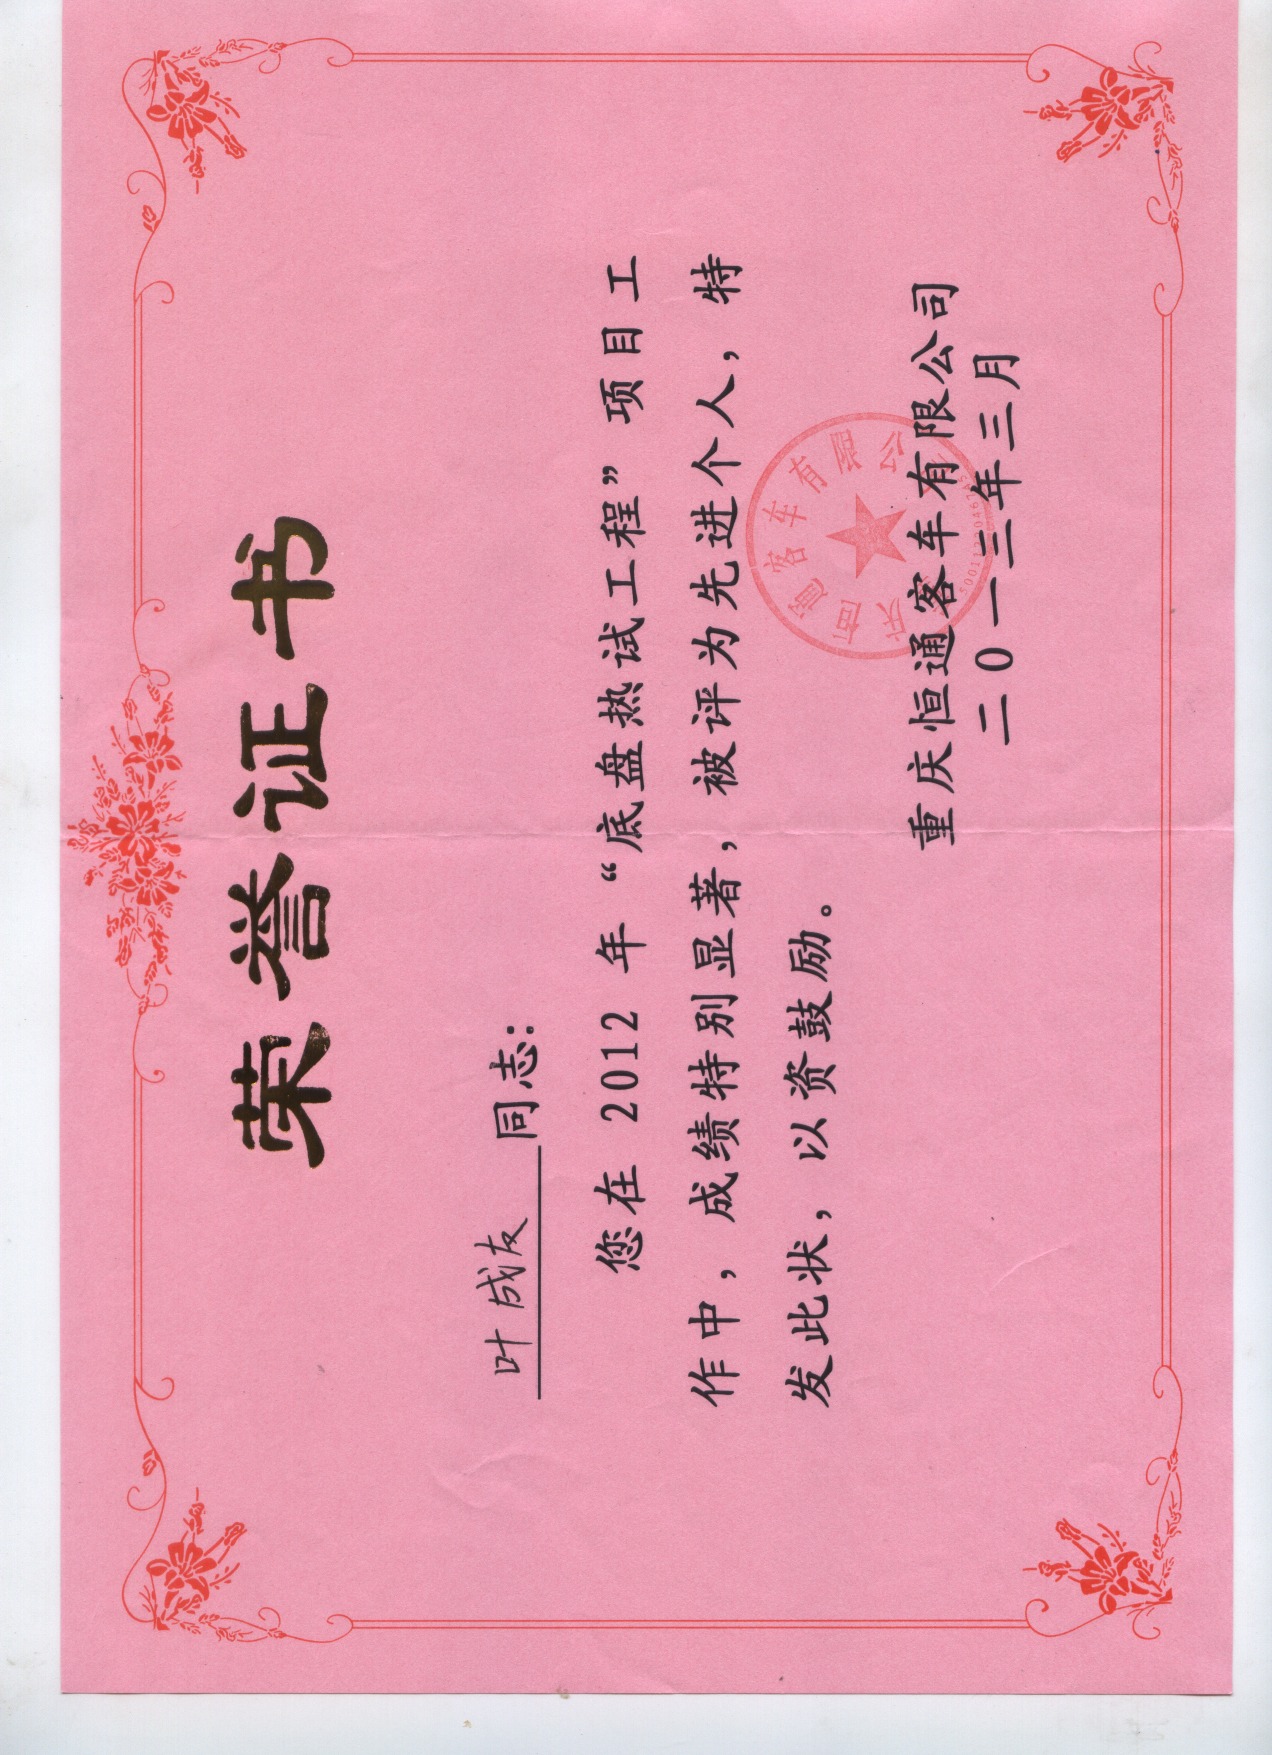 荣誉证书
叶成友 同志：
您在 2012 年“底盘热试工程”项目工
作中，成绩特别显著，被评为先进个人，特
发此状，以资鼓励。
重庆恒通客车有限公司
二〇一三年三月